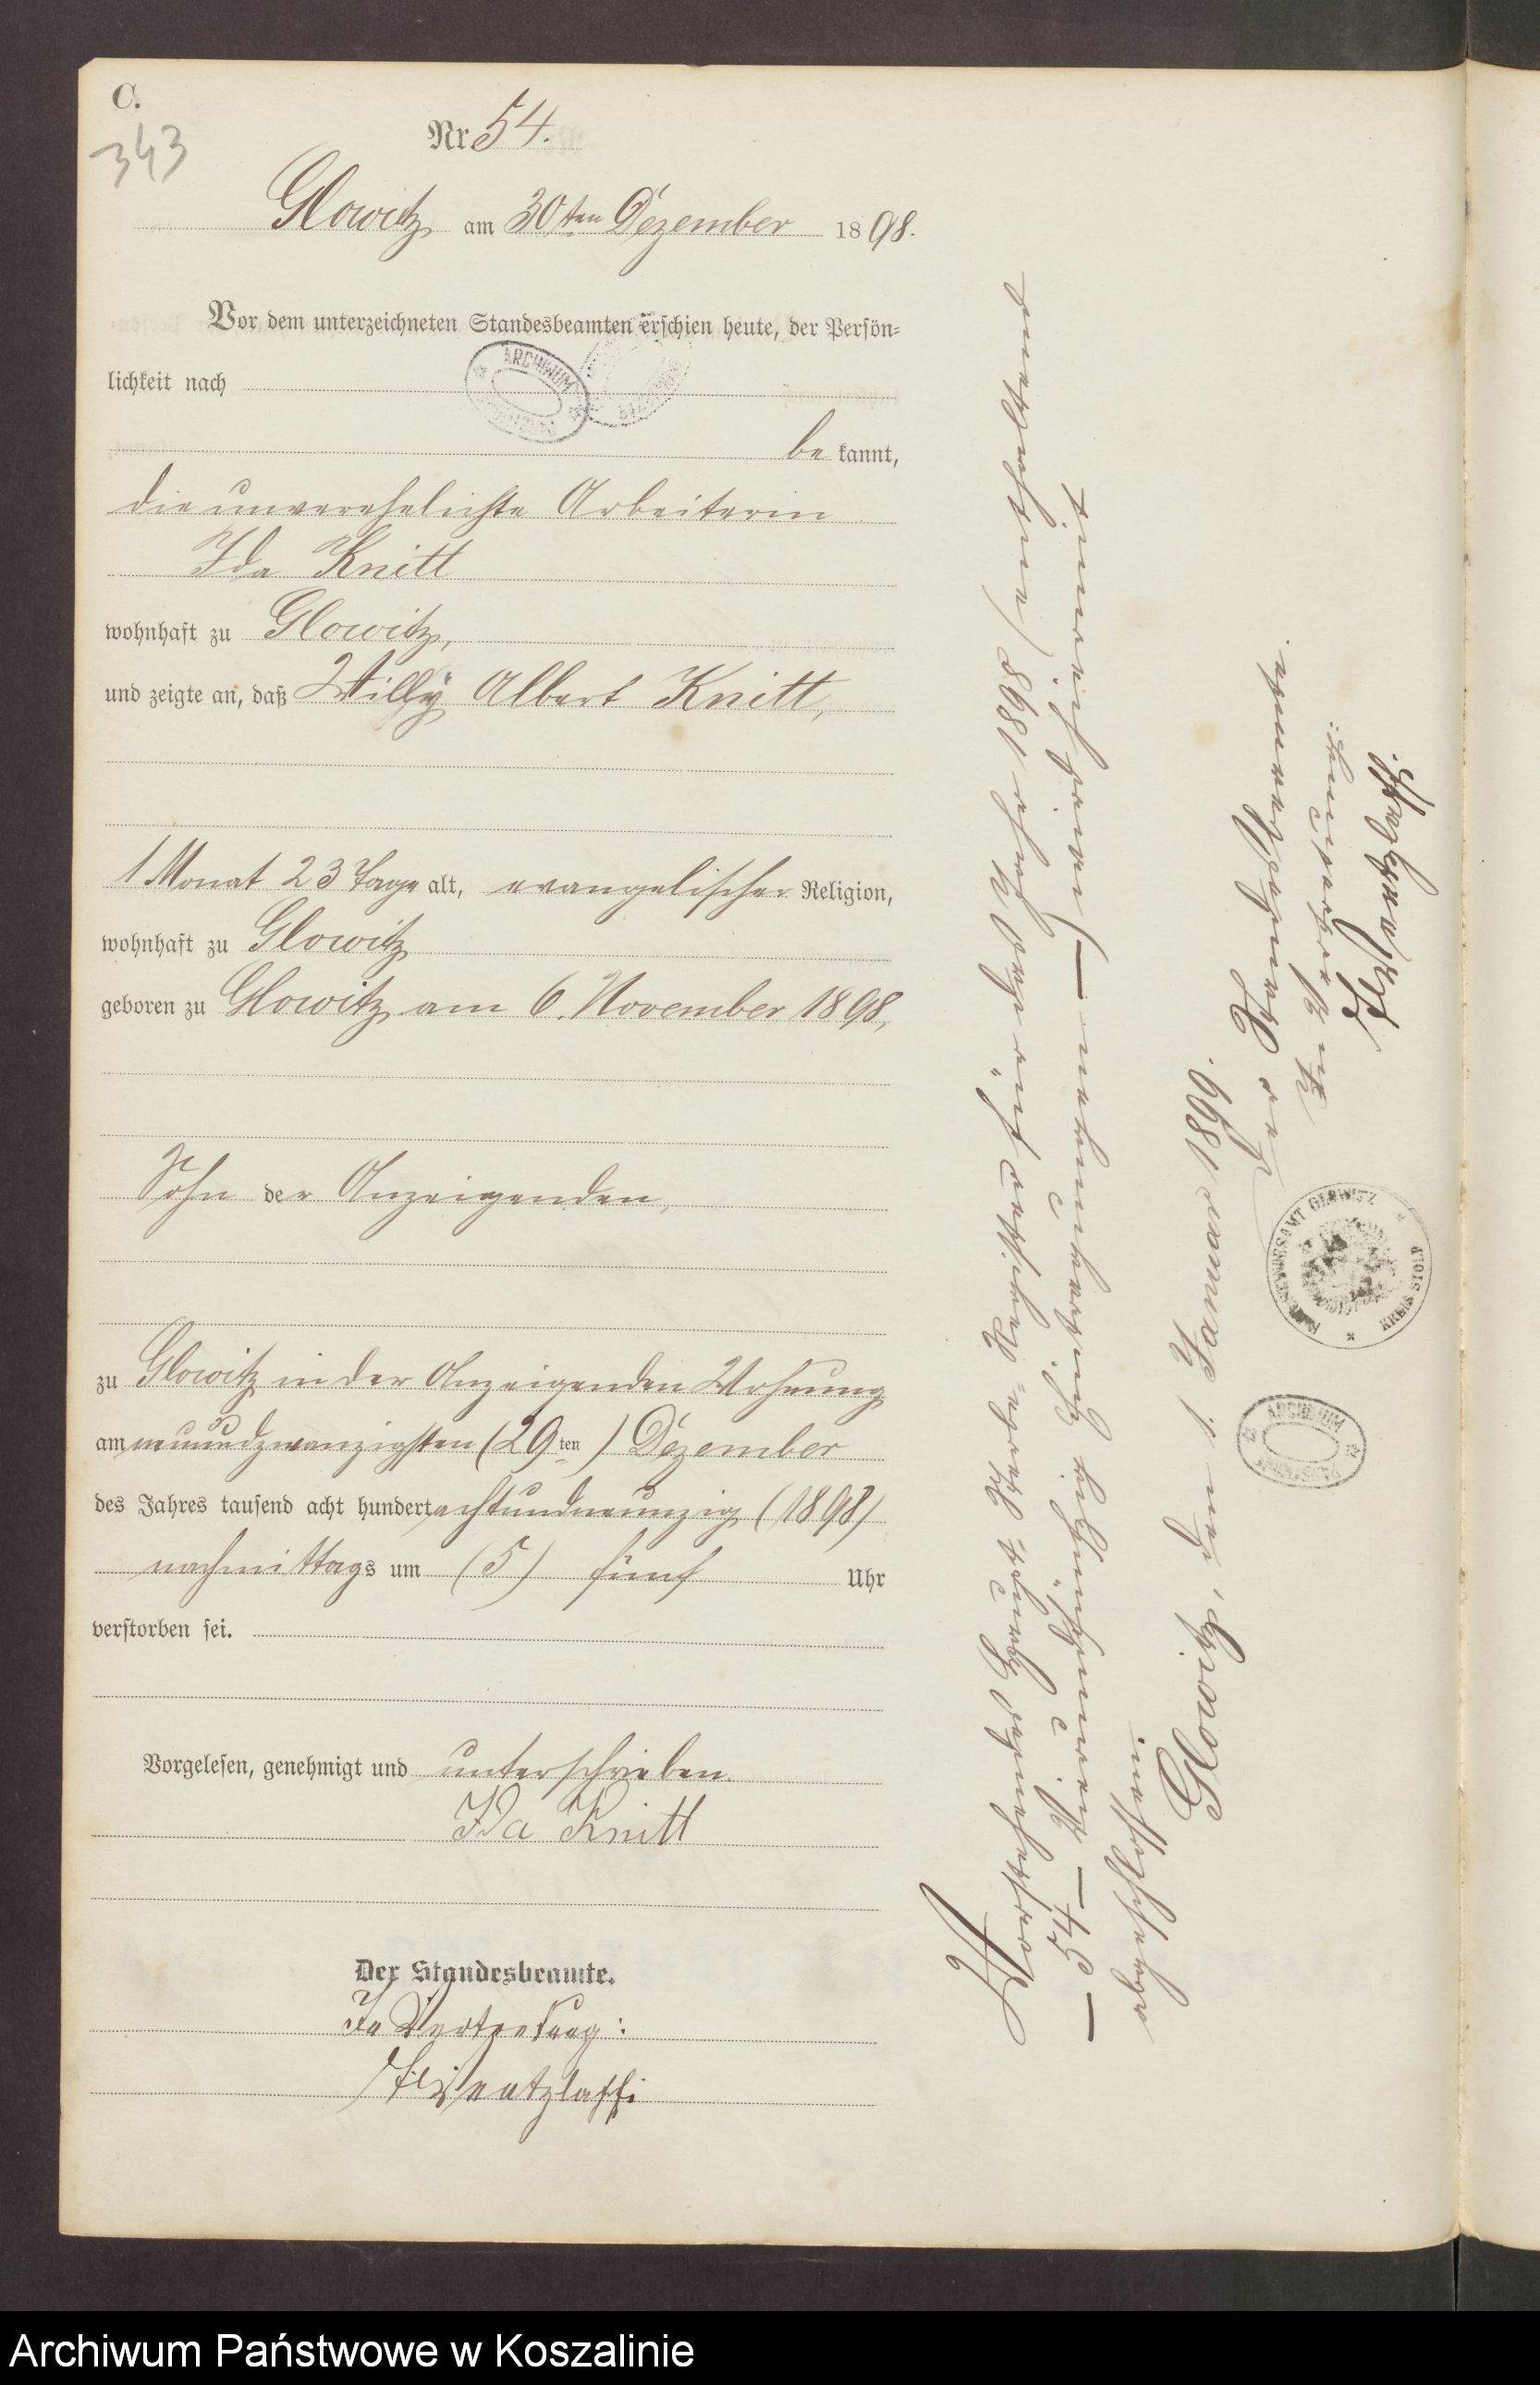 C.
343
Nr 54.
Glowitz am 30ten Dezember 1898.
Vor dem unterzeichneten Standesbeamten erschien heute, der Persön=
lichkeit nach
ARCHIWUM
be kannt,
die unverehelichte Arbeiterin
Ida Knitt
wohnhaft zu Glowitz,
und zeigte an, daß Willÿ Albert Knitt,
1 Monat 23 Tage alt, evangelischer Religion,
wohnhaft zu Glowitz
geboren zu Glowitz am 6. November 1898,
Sohn der Anzeigenden,
zu Glowitz in der Anzeigenden Wohnung
am neunundzwanzigsten (29ten) Dezember
des Jahres tausend acht hundert achtundneunzig (1898)
nachmittags um (5) fünf Uhr
verstorben sei.
Vorgelesen, genehmigt und unterschrieben.
Ida Knitt
Der Standesbeamte.
In Vertretung:
Vorstehendes Haupt-Sterbe-Register für das Jahr 1898
54 Vierundfünfzig Eintragungen
abgeschlossen.
Glowitz, den 1. Januar 1899.
Der Standesbeamte.
In Vertretung:
STANDESAMT GLOWITZ
KREIS STOLP
ARCHIWUM
Archiwum Państwowe w Koszalinie